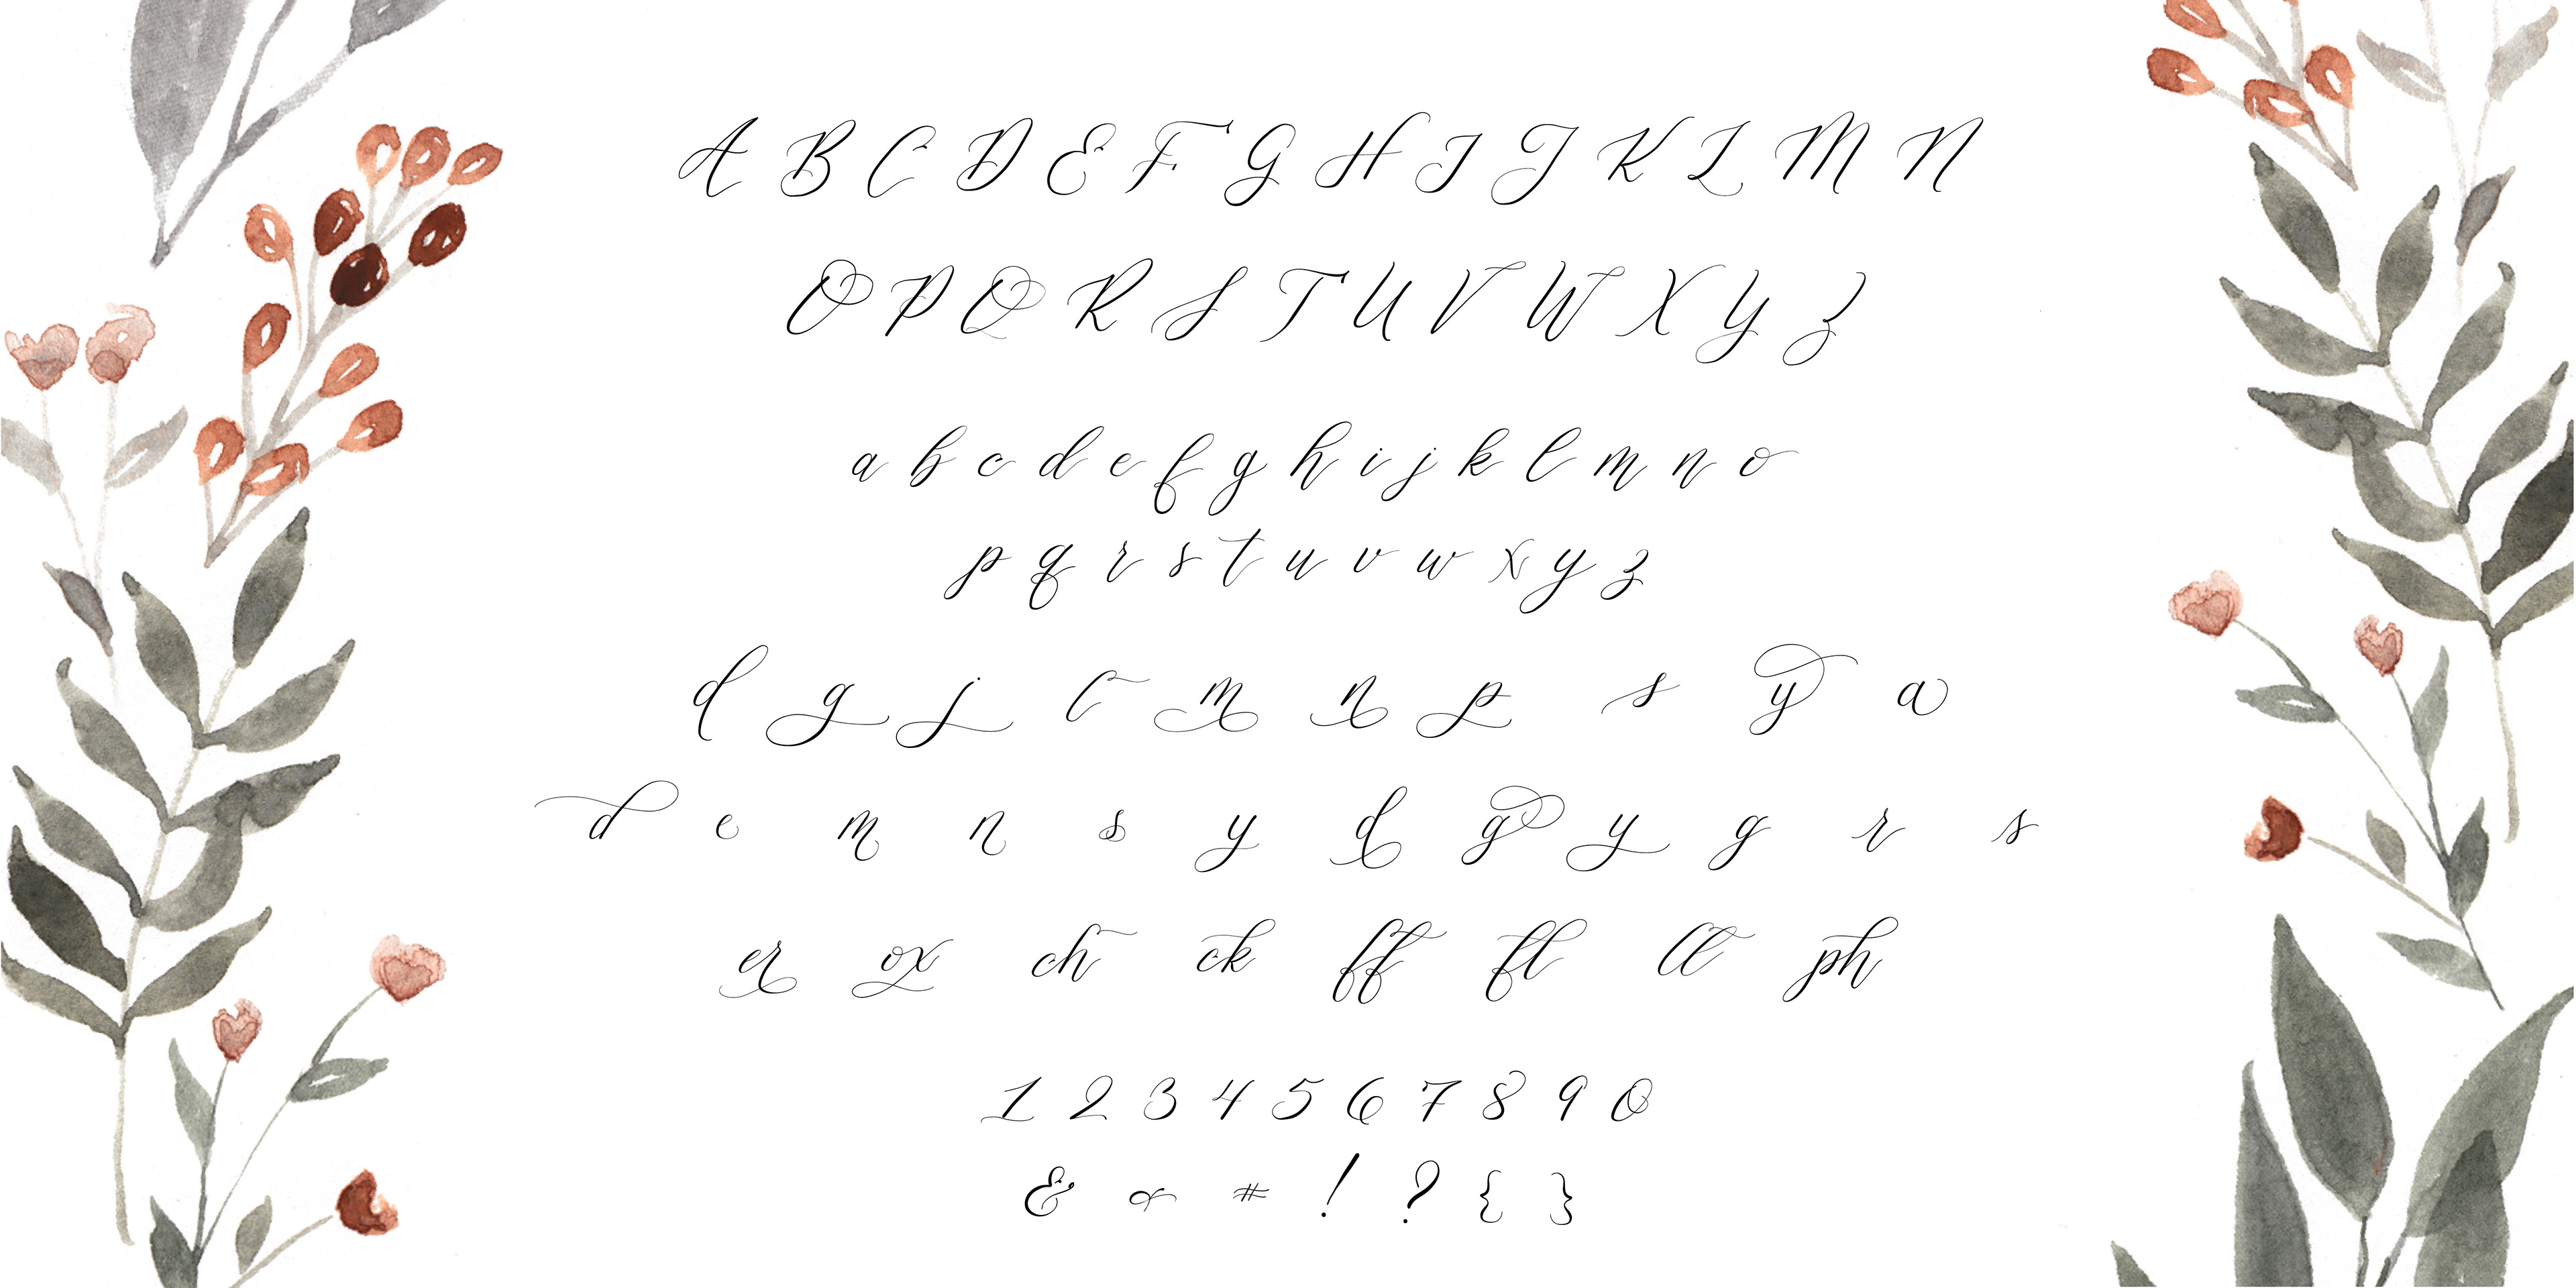 A B C D E F G H I J K L M N
O P Q R S T U V W X Y Z
a b c d e f g h i j k l m n o
p q r s t u v w x y z
d g j t m n p s y a
d e m n s y d g y g r s
er ox ch ck ff fl tt ph
1 2 3 4 5 6 7 8 9 0
& # ! ? { }